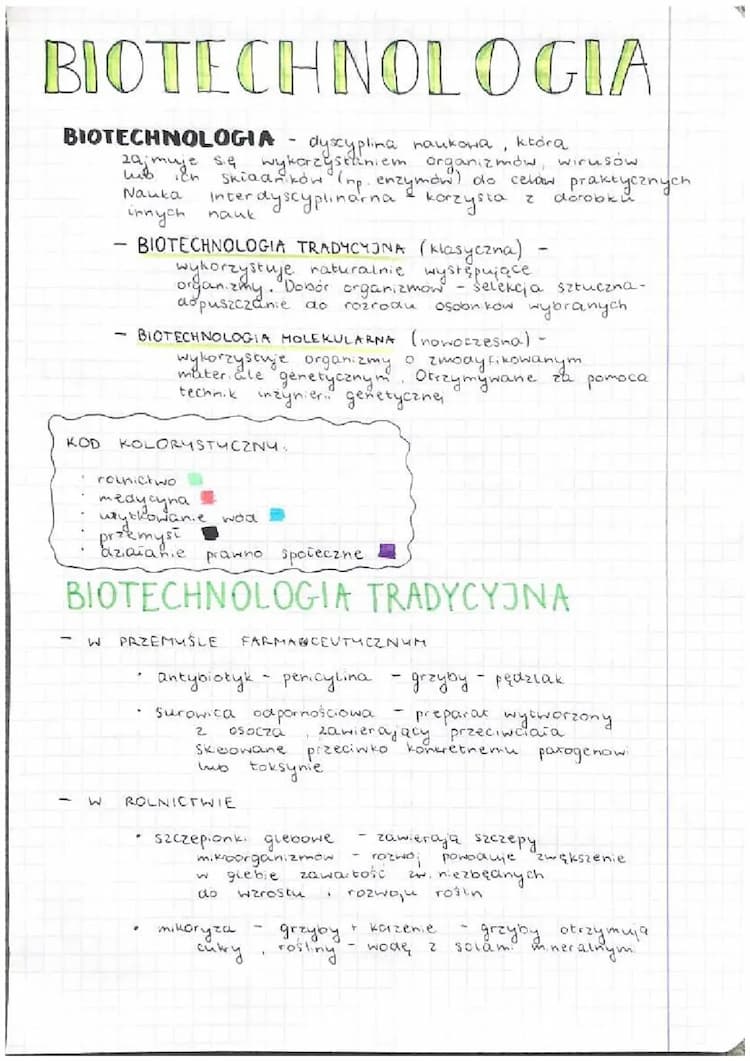 BIOTECHNOLOGIA
BIOTECHNOLOGIA - dyscyplina naukowa, która
zajmuje się wykorzystaniem organizmów, wirusów
lub ich składników (np. enzymów) do celów praktycznych
Nauka interdyscyplinarna - korzysta z dorobku
innych nauk
- BIOTECHNOLOGIA TRADYCYJNA (klasyczna) -
wykorzystuje naturalnie występujące
organizmy. Dobór organizmów - selekcja sztuczna -
dopuszczanie do rozrodu osobników wybranych
- BIOTECHNOLOGIA MOLEKULARNA (nowoczesna) -
wykorzystuje organizmy o zmodyfikowanym
materiale genetycznym. Otrzymywane za pomocą
technik inżynierii genetycznej
KOD KOLORYSTYCZNY:
· rolnictwo
· medycyna
· użytkowanie wód
· przemysł
· działanie prawno społeczne
BIOTECHNOLOGIA TRADYCYJNA
- W PRZEMYŚLE FARMACEUTYCZNYM
• antybiotyk - penicylina - grzyby - pędzlak
• surowica odpornościowa - preparat wytworzony
z osocza, zawierający przeciwciała
skierowane przeciwko konkretnemu patogenowi
lub toksynie
- W ROLNICTWIE
• szczepionki glebowe - zawierają szczepy
mikroorganizmów - rozwój powoduje zwiększenie
w glebie zawartość zw. niezbędnych
do wzrostu i rozwoju roślin
• mikoryza - grzyby + korzenie - grzyby otrzymują
cukry, rośliny - wodę z solami mineralnymi